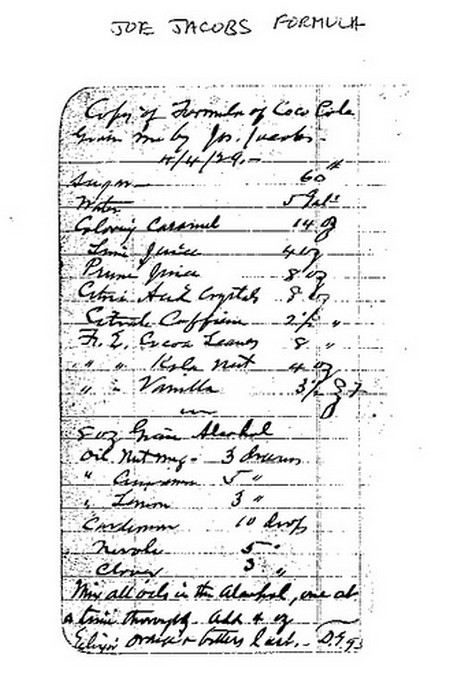 JOE JACOBS FORMULA
Copy of Formula of Coco Cola
Given me by Jos. Jacobs -
4/4/29. -
Sugar 60 #
Water 5 Gals
Coloring Caramel 14 oz
Lime Juice 4 oz
Prune Juice 8 oz
Citric Acid Crystals 8 oz
Citrate Caffein 2½ "
Fl. E. Cocoa Leaves 8 "
" " Kola Nut 4 oz
" " Vanilla
in
8 oz Grain Alcohol
Oil Nutmeg - 3 drams
" Cinnamon 5 "
" Lemon 3 "
Cardamon 10 drop
Neroli 5 "
Cloves 3 "
Mix all oils in the Alcohol, one at
a time thoroughly. Add 4 oz
Elixir orange bitters last. -